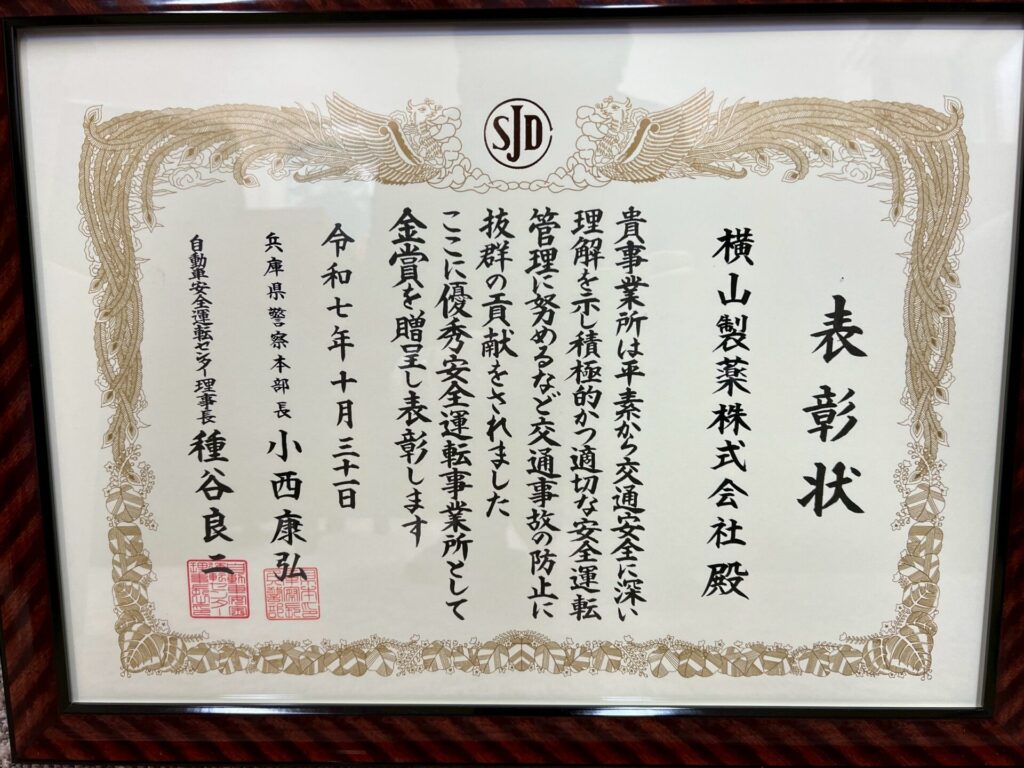 SJD
表彰状
横山製薬株式会社 殿
貴事業所は平素から交通安全に深い
理解を示し積極的かつ適切な安全運転
管理に努めるなど交通事故の防止に
抜群の貢献をされました
ここに優秀安全運転事業所として
金賞を贈呈し表彰します
令和七年十月三十一日
兵庫県警察本部長 小西康弘
自動車安全運転センター理事長 種谷良二